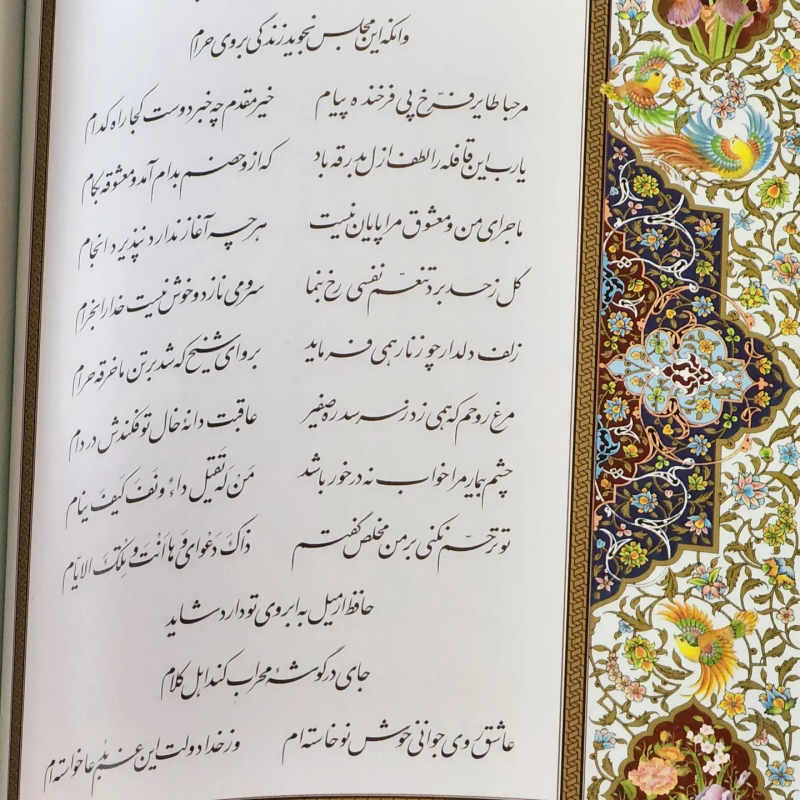 وانکه این مجلس نجوید زندگی بروی حرام
مرحبا طایر فرّخ پی فرخنده پیام خیر مقدم چه خبر دوست کجا راه کدام
یارب این قافله را لطف ازل بدرقه باد که ازو خصم بدام آمد و معشوقه بکام
ماجرای من و معشوق مرا پایان نیست هرچه آغاز ندارد نپذیرد انجام
گل ز حد برد تنعّم نفسی رخ بنما سرو می نازد و خوش نیست خدا را بخرام
زلف دلدار چو زنار همی فرماید برو ای شیخ که شد بر تن ما خرقه حرام
مرغ روحم که همی زد ز سر سدره صفیر عاقبت دانهٔ خال تو فکندش در دام
چشم بیمار مرا خواب نه درخور باشد مَن لَه تَقتِیل داءٌ دَنَفٌ کَیفَ ینام
تو ترحّم نکنی بر من مخلص گفتم ذاکَ دَعوایَ وَ ها اَنتَ وَ تِلکَ الایّام
حافظ ار میل به ابروی تو دارد شاید
جای در گوشهٔ محراب کنند اهل کلام
عاشق روی جوانی خوش نوخاسته‌ام وز خدا دولت این غم بدعا خواسته‌ام